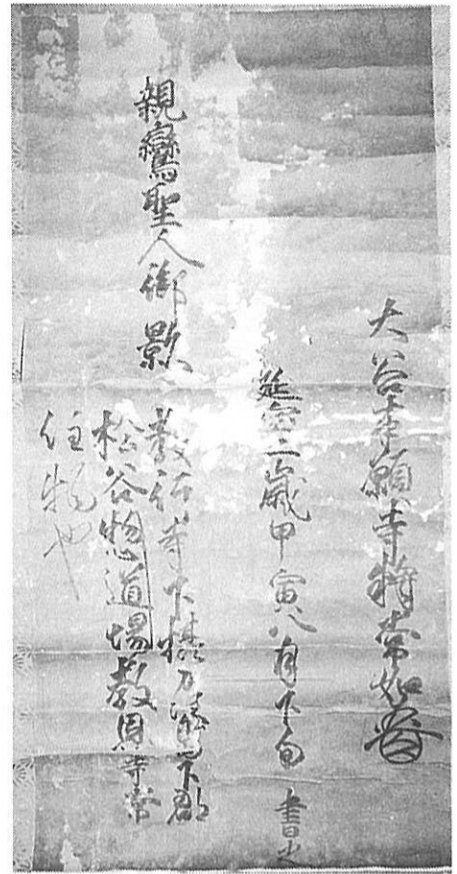 大谷本願寺釋常如
延宝二歳甲寅八月下旬 書之
親鸞聖人御影
寺下摂刕嶋下郡
松谷惣道場教恩寺常
住物也